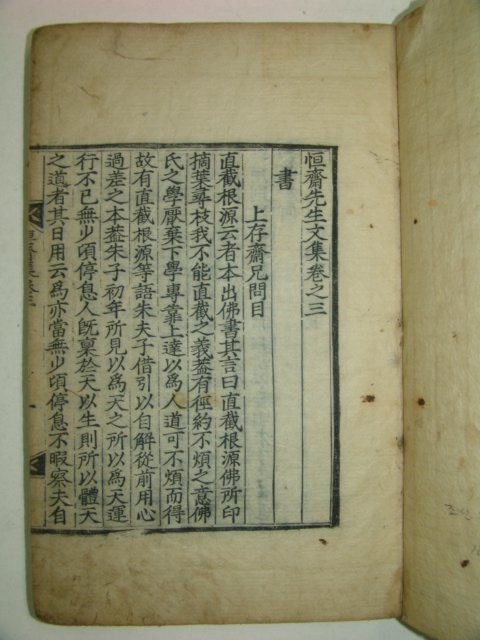 恒齋先生文集卷之三
書
上存齋兄問目
直截根源云者本出佛書其言曰直截根源佛所印
摘葉尋枝我不能直截之義蓋有徑約不煩之意佛
氏之學厭棄下學專靠上達以爲人道可不煩而得
故有直截根源等語朱夫子借引以自解從前用心
過差之本蓋朱子初年所見以爲天之所以爲天運
行不已無少頃停息人旣稟於天以生則所以體天
之道者其日用云爲亦當無少頃停息不暇察夫自